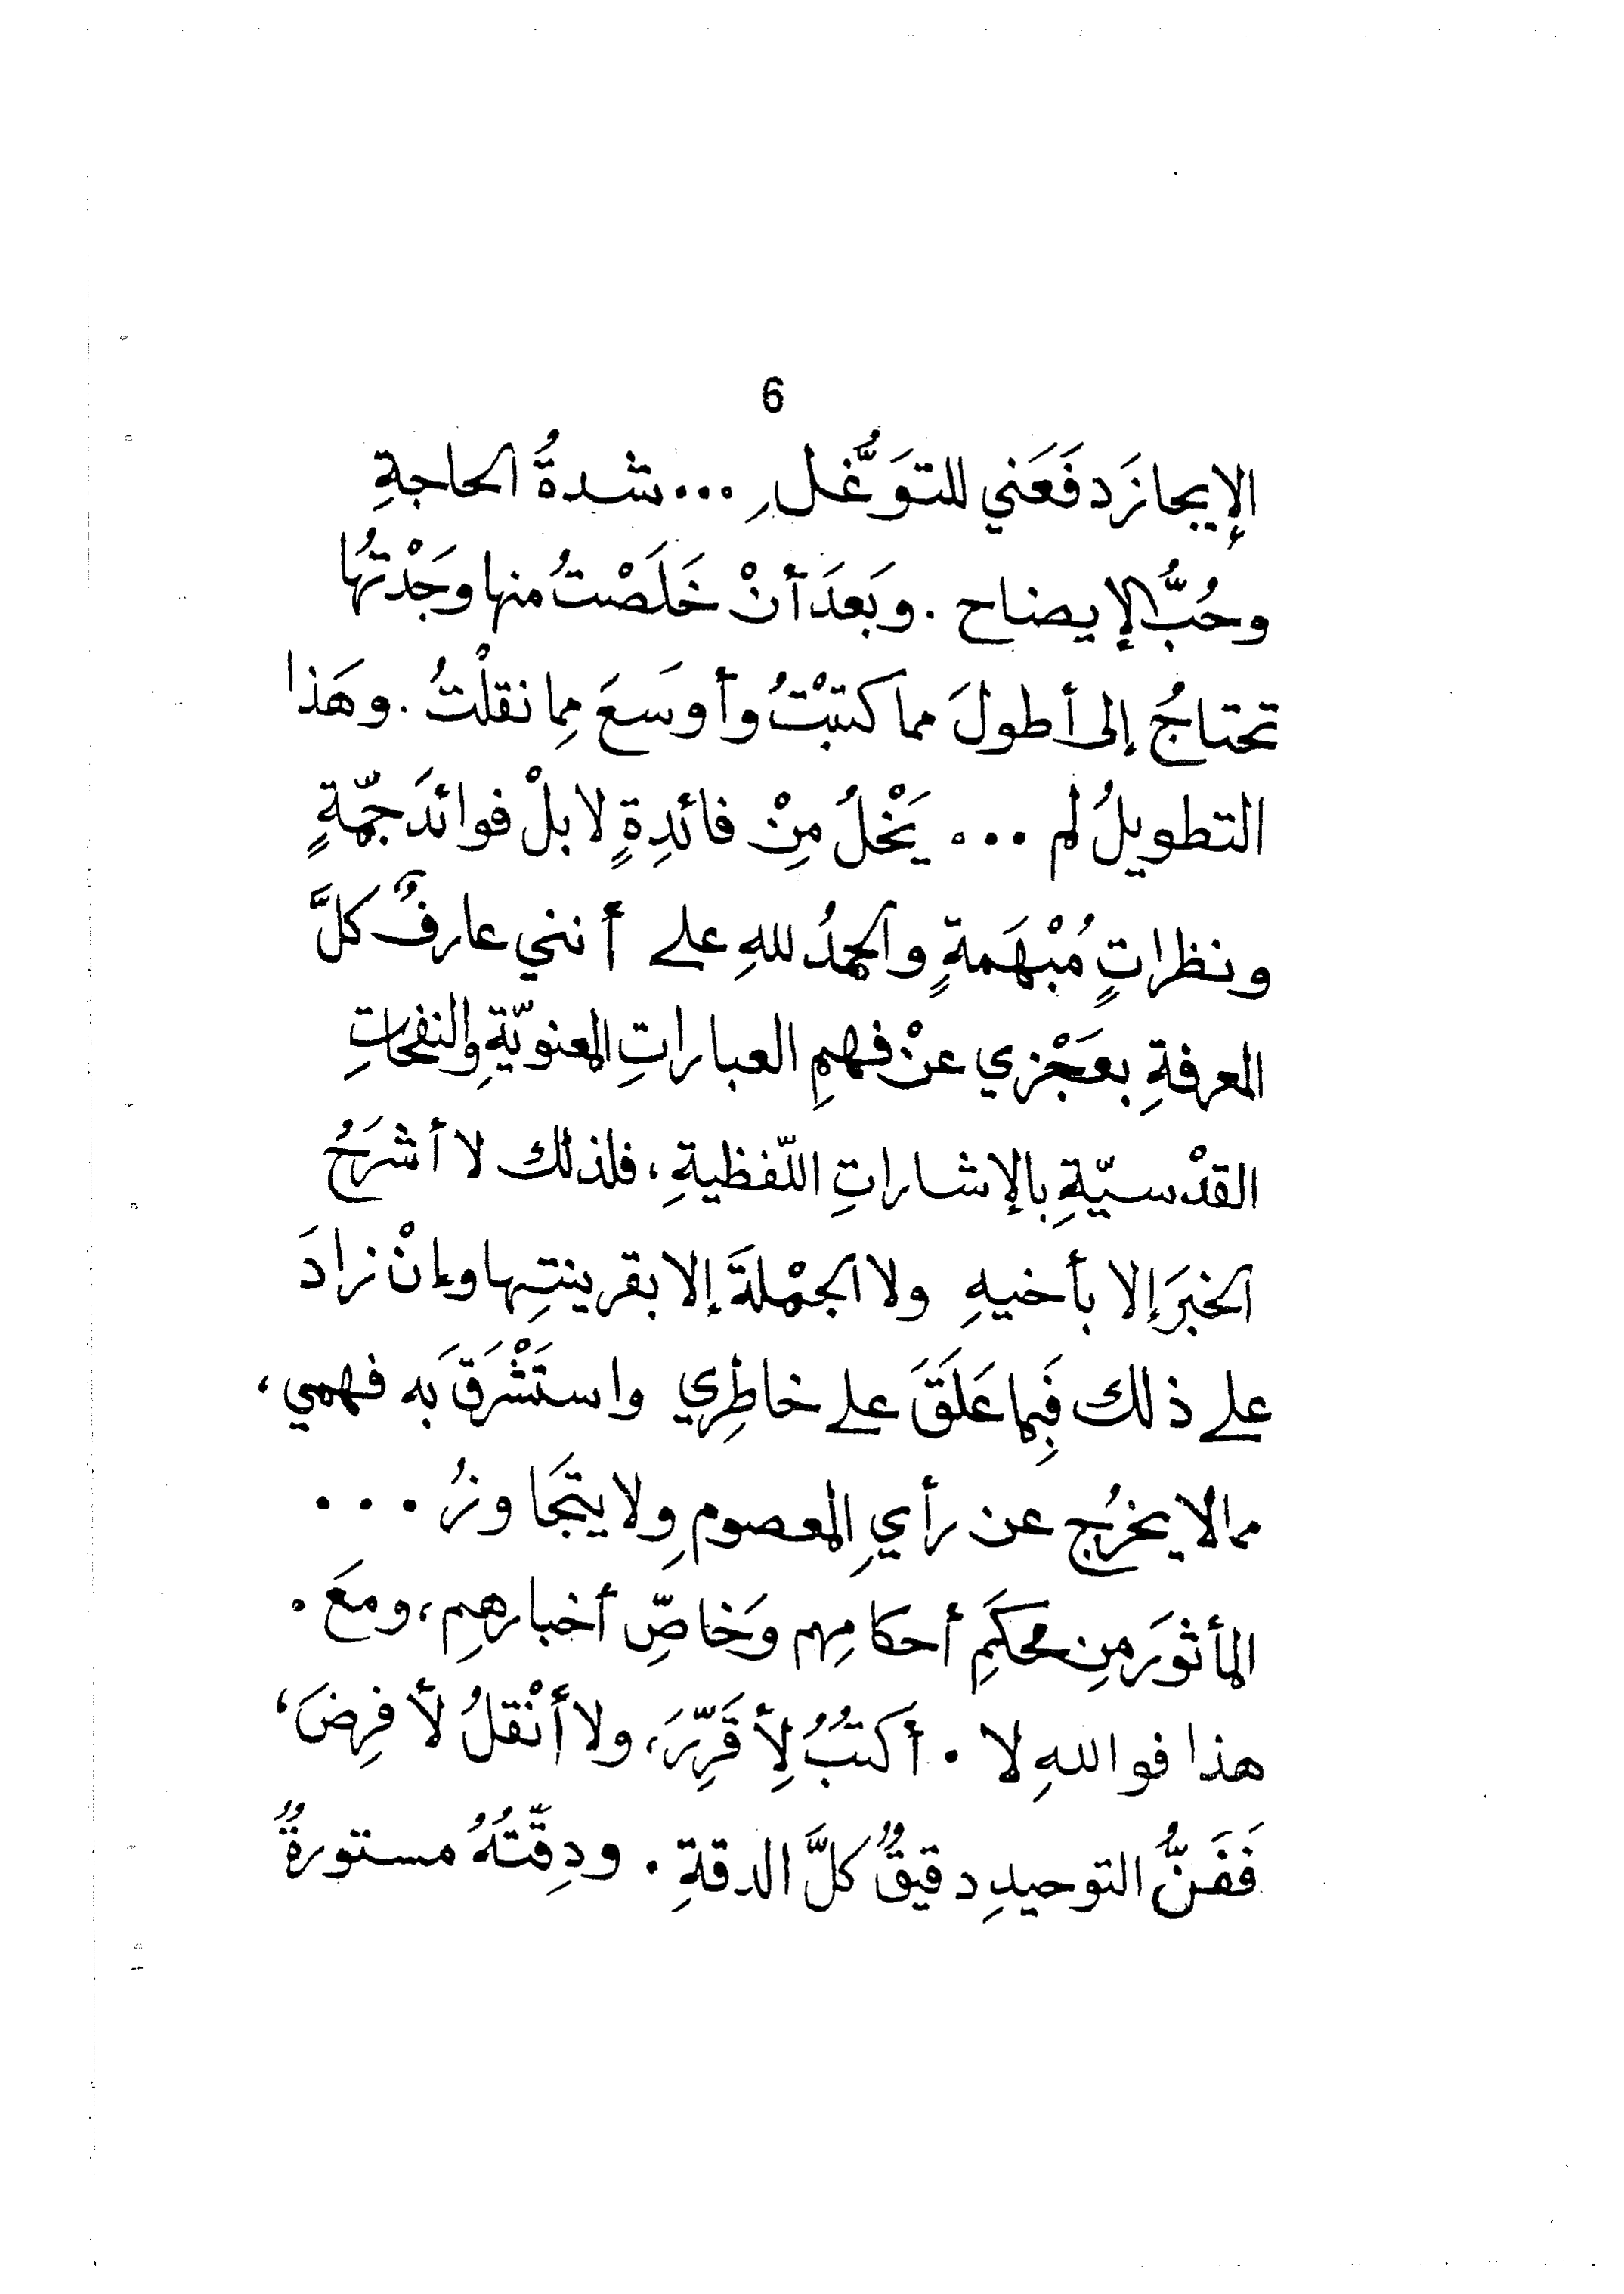 6
الإيجازَ دفَعَني للتوَغُّلِ ... شدةُ الحاجةِ
وحُبُّ الإيضاح . وبَعدَ أنْ خَلَصْتُ منها وجَدْتُها
تحتاجُ إلى أطولَ مما كتبْتُ وأوسَعَ مِما نقلْتُ . وهَذا
التطويلُ لم ... يَخْلُ مِنْ فائدِةٍ لا بلْ فوائدَ جمّةٍ
ونظراتٍ مُبْهَمةٍ والحمدُ للهِ على أنني عارفٌ كلَّ
المعرفةِ بعَجْزي عنْ فهمِ العباراتِ المعنويّةِ والنفحاتِ
القدْسيّةِ بالإشاراتِ اللّفظيةِ ، فلذلك لا أشرَحُ
الخبَرَ إلا بأخيهِ ولا الجمْلةَ إلا بقرينتِها وإنْ زادَ
على ذلك فَبِما عَلَقَ على خاطِري واستَشْرَقَ به فهمي ،
مما لا يخرُج عن رأيِ المعصومِ ولا يتجَاوزُ ...
المأثورَ مِن محكَمِ أحكامِهم وَخاصِّ أخبارهِم ، ومعَ .
هذا فواللهِ لا . أكتبُ لِأقَرِّرَ ، ولا أنْقلُ لأفرِضَ ،
فَفَنُّ التوحيدِ دقيقٌ كلَّ الدقةِ . ودِقّتُهُ مستورةٌ